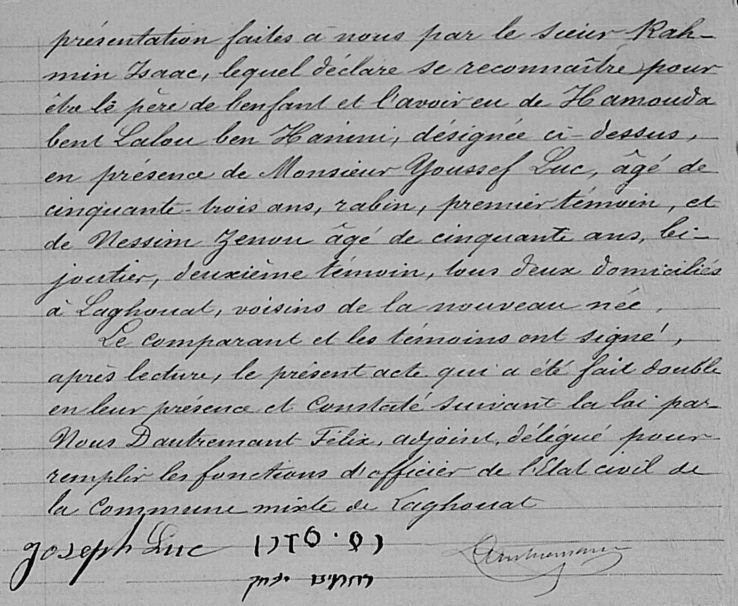 présentation faites à nous par le sieur Rah-
min Isaac, lequel déclare se reconnaître pour
être le père de l'enfant et l'avoir eu de Hamouda
bent Lalou ben Hanini, désignée ci-dessus,
en présence de Monsieur Youssef Luc, âgé de
cinquante-trois ans, rabin, premier témoin, et
de Nessim Zenou âgé de cinquante ans, bi-
joutier, deuxième témoin, tous deux domiciliés
à Laghouat, voisins de la nouveau née.
Le comparant et les témoins ont signé,
après lecture, le présent acte qui a été fait double
en leur présence et constaté suivant la loi par
Nous Dautremant Félix, adjoint, délégué pour
remplir les fonctions d'officier de l'Etat civil de
la Commune mixte de Laghouat
Joseph Luc
Dautremant